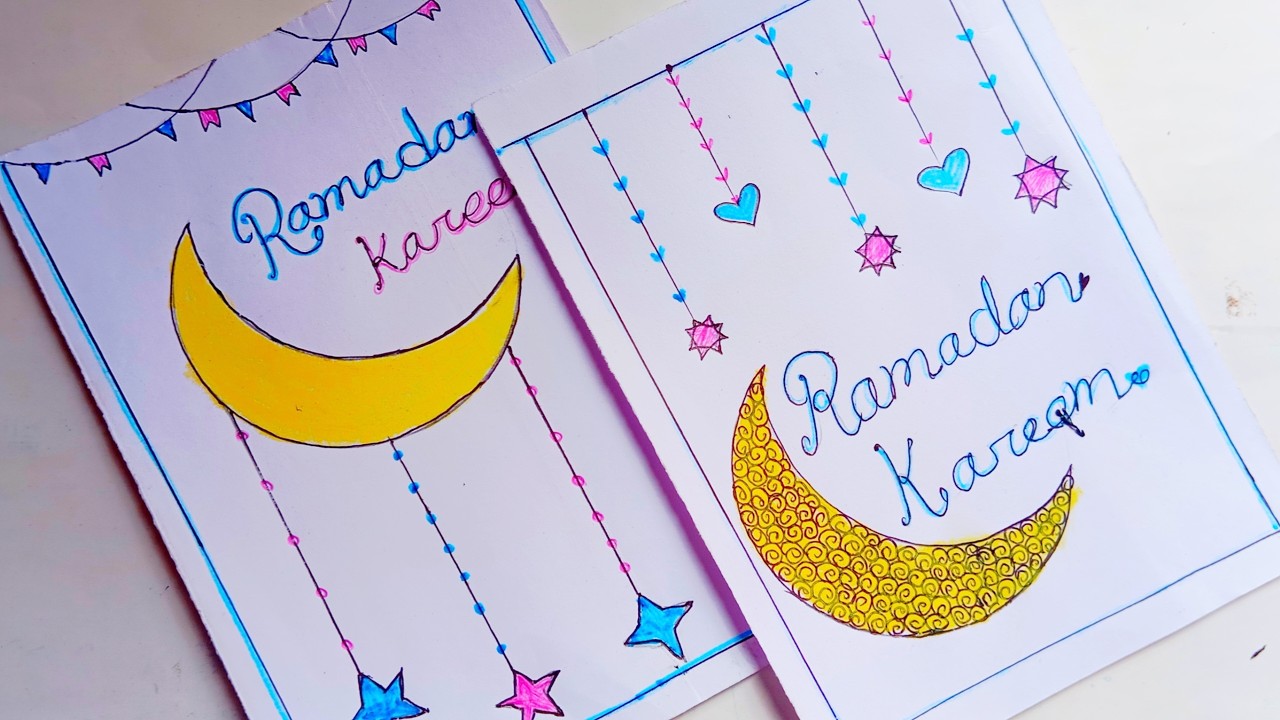 Ramadan
Karee
Ramadan
Kareem